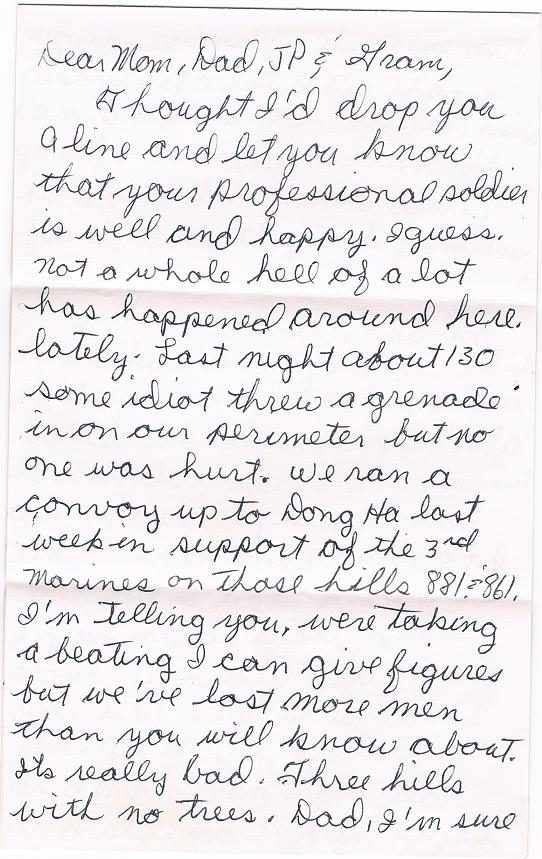 Dear Mom, Dad, JP & Gram,
Thought I'd drop you
a line and let you know
that your professional soldier
is well and happy. I guess.
Not a whole hell of a lot
has happened around here.
lately. Last night about 130
some idiot threw a grenade
in on our perimeter but no
one was hurt. We ran a
convoy up to Dong Ha last
week in support of the 3rd
Marines on those hills 881 & 861.
I'm telling you, were taking
a beating I can give figures
but we've lost more men
than you will know about.
Its really bad. Three hills
with no trees. Dad, I'm sure